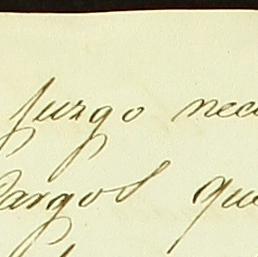 juzgo nece
Cargos que